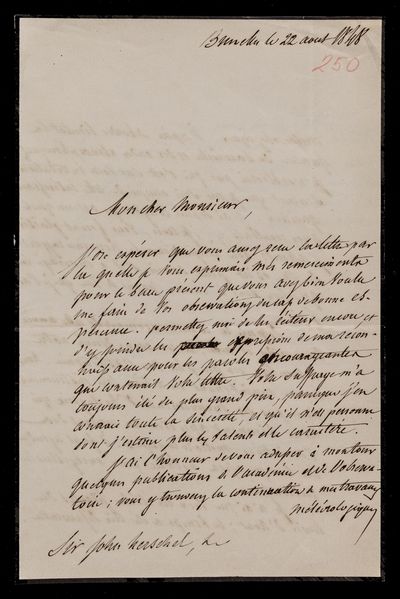 Bruxelles le 22 aout 1848
250
Mon cher Monsieur,
J'ose espérer que vous avez reçu la lettre par
la quelle je vous exprimais mes remerciements
pour le beau présent que vous avez bien voulu
me faire de vos observations du cap de bonne es-
pérance. permettez moi de les réitérer encore et
d'y joindre les expressions de ma recon-
naissance pour les paroles encourageantes
que contenait votre lettre. Votre suffrage m'a
toujours été du plus grand prix, parceque j'en
connais toute la sincérité, et qu'il n'est personne
dont j'estime plus les talents et le caractère.
J'ai l'honneur de vous adresser à mon tour
quelques publications de l'académie et de l'observa-
toire; vous y trouverez la continuation de mes travaux
météorologiques
Sir John Herschel, &